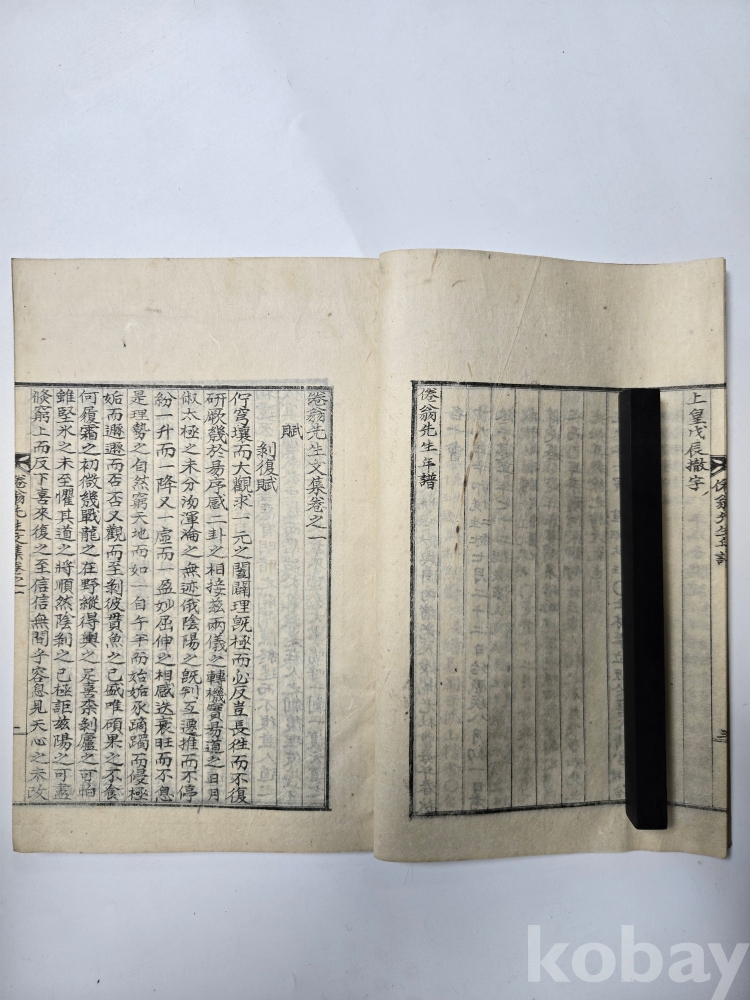 上皇戊辰撤字
倦翁先生年譜
倦翁先生年譜
倦翁先生文集卷之一
賦
剝復賦
佇穹壤而大觀求一元之闔闢理旣極而必反豈長往而不復
研厥幾於易序感二卦之相接玆兩儀之轉機實易道之日月
倣太極之未分沕渾淪之無迹俄陰陽之旣判互遷推而不停
紛一升而一降又一虛而一盈妙屈伸之相感迭衰旺而不息
是理勢之自然窮天地而如一自午半而始姤豕蹢躅而侵極
姤而遯遯而否否又觀而至剝彼貫魚之已盛唯碩果之不食
何履霜之初微幾戰龍之在野縱得輿之是喜柰剝廬之可怕
雖堅氷之未至懼其道之將順然陰剝之已極詎玆陽之可盡
倐窮上而反下喜來復之至信信無間乎容息見天心之未改
倦翁先生文集卷之一
一
kobay